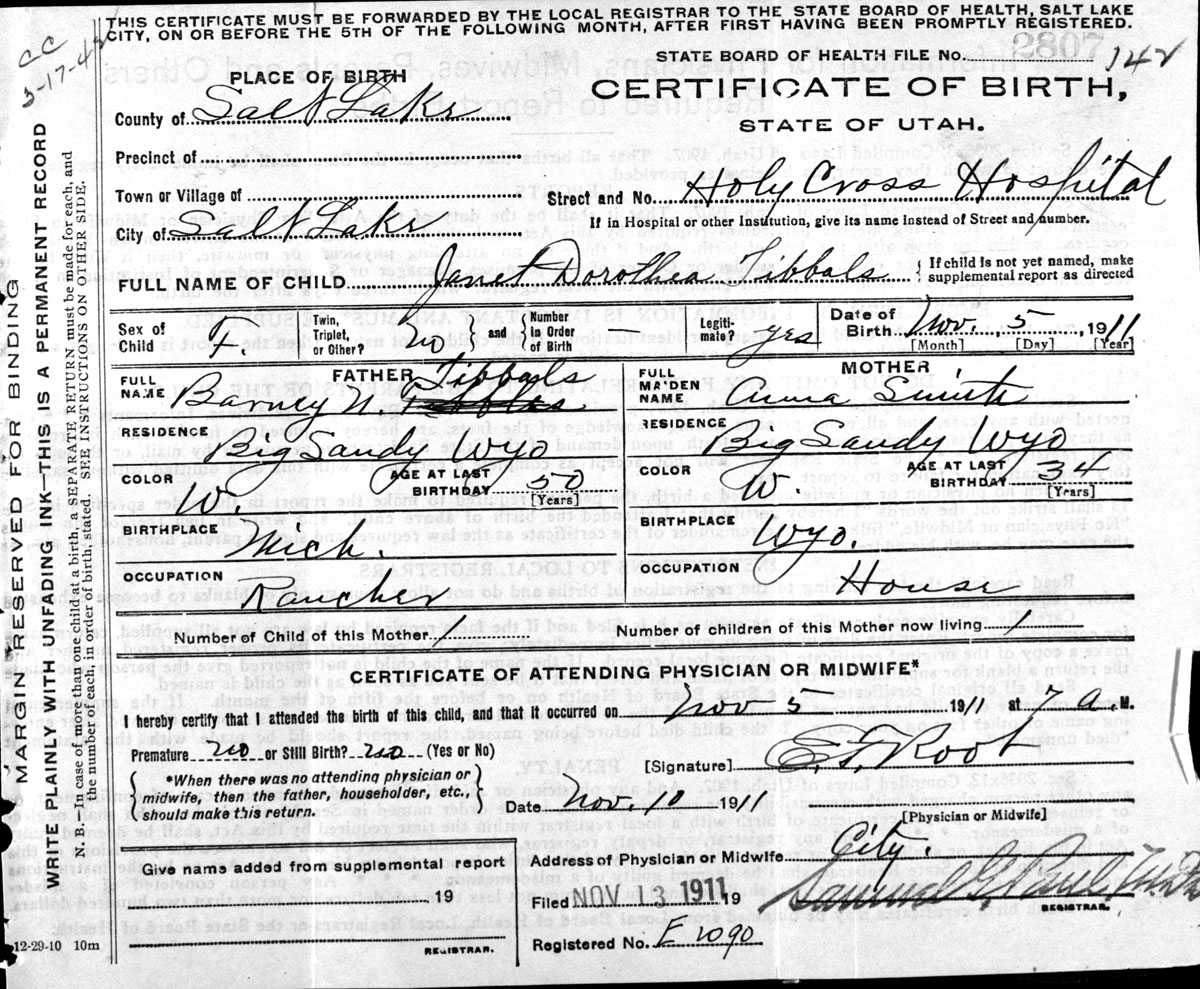 THIS CERTIFICATE MUST BE FORWARDED BY THE LOCAL REGISTRAR TO THE STATE BOARD OF HEALTH, SALT LAKE
CITY, ON OR BEFORE THE 5TH OF THE FOLLOWING MONTH, AFTER FIRST HAVING BEEN PROMPTLY REGISTERED.
CC
3-17-42
MARGIN RESERVED FOR BINDING
WRITE PLAINLY WITH UNFADING INK—THIS IS A PERMANENT RECORD
N. B.—In case of more than one child at a birth, a SEPARATE RETURN must be made for each, and
the number of each, in order of birth, stated. SEE INSTRUCTIONS ON OTHER SIDE.
STATE BOARD OF HEALTH FILE No. 2807 142
PLACE OF BIRTH
CERTIFICATE OF BIRTH,
STATE OF UTAH.
County of Salt Lake
Precinct of
Town or Village of
Street and No. Holy Cross Hospital
City of Salt Lake
If in Hospital or other Institution, give its name instead of Street and number.
FULL NAME OF CHILD Janet Dorothea Tibbals
{ If child is not yet named, make
supplemental report as directed
Sex of Child F. Twin, Triplet, or Other? no } and { Number in Order of Birth — Legitimate? yes Date of Birth Nov. 5, 1911
[Month] [Day] [Year]
FATHER
FULL NAME Barney N Tibbals
RESIDENCE Big Sandy Wyo
COLOR W AGE AT LAST BIRTHDAY 50 [Years]
BIRTHPLACE Mich.
OCCUPATION Rancher
MOTHER
FULL MAIDEN NAME Anna Smith
RESIDENCE Big Sandy Wyo
COLOR W AGE AT LAST BIRTHDAY 34 [Years]
BIRTHPLACE Wyo.
OCCUPATION House
Number of Child of this Mother 1 Number of children of this Mother now living 1
CERTIFICATE OF ATTENDING PHYSICIAN OR MIDWIFE*
I hereby certify that I attended the birth of this child, and that it occurred on Nov 5 1911 at 7 a. M.
Premature no or Still Birth? no (Yes or No)
[Signature] E. F. Root
{ *When there was no attending physician or
midwife, then the father, householder, etc.,
should make this return. }
Date Nov. 10 1911
[Physician or Midwife]
Give name added from supplemental report
19
REGISTRAR.
Address of Physician or Midwife City.
Filed NOV 13 1911 19
REGISTRAR.
Registered No. E 1090
12-29-10 10m